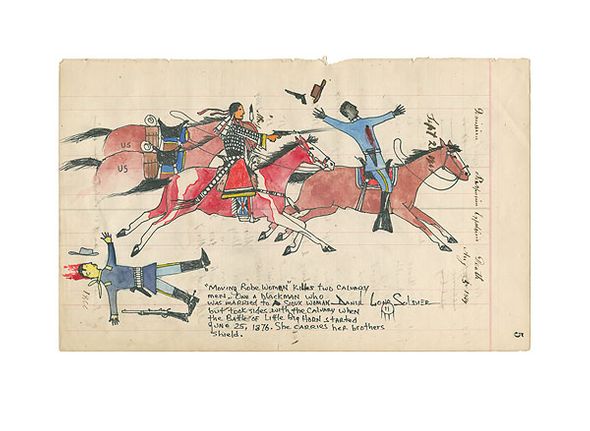 US
US
Sept 2
Death
"Moving Robe Women" kills two calvary
men. One a blackman who
was married to a Sioux woman Daniel Long Soldier
but took sides with the calvary when
the Battle of Little Big Horn started
June 25, 1876. She carries her brothers
shield.
5